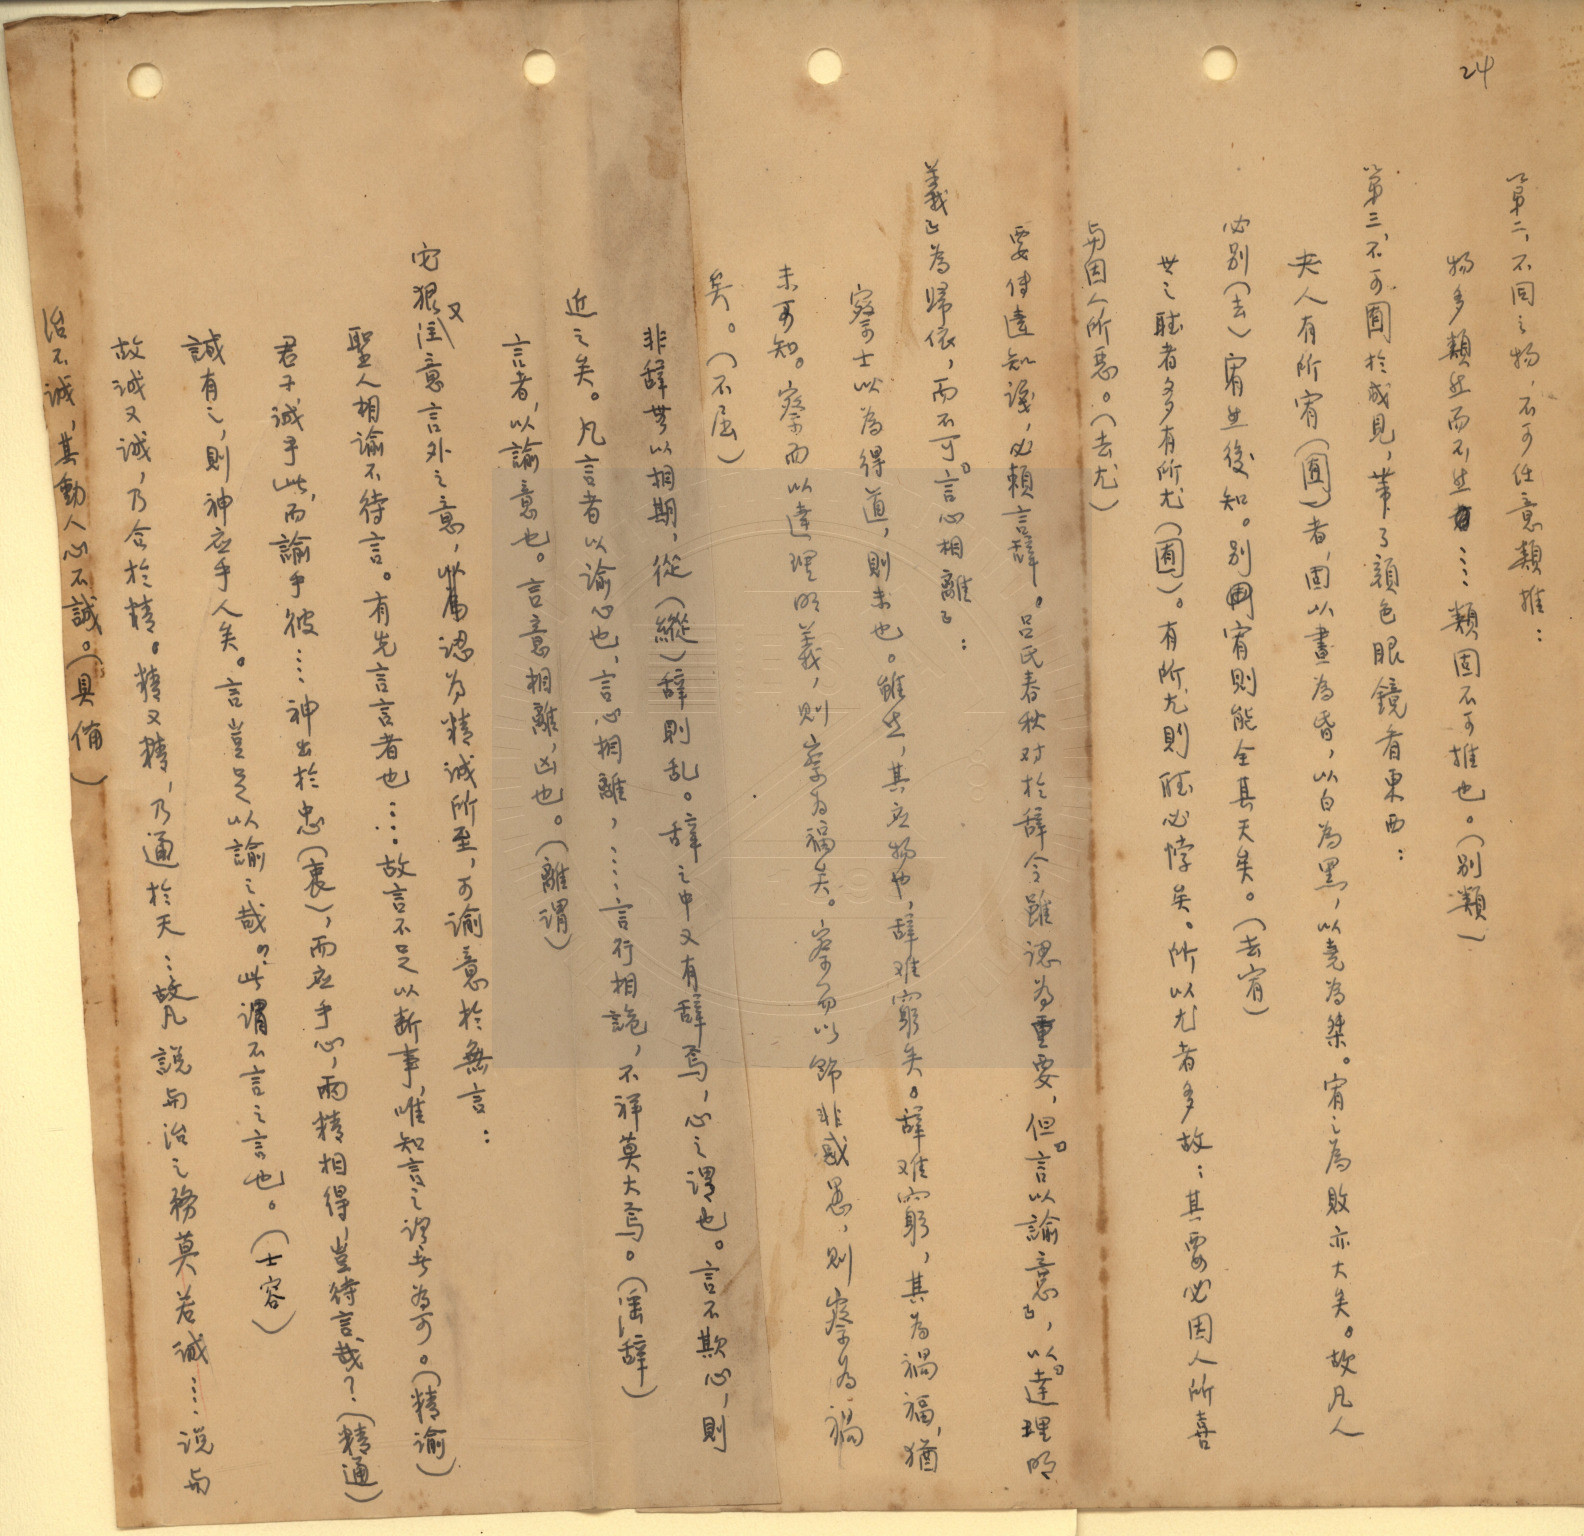 24
第二，不同之物，不可任意類推：
物多類然而不然……類固不可推也。（別類）
第三，不可囿於成見，带了顏色眼鏡看東西：
夫人有所宥（囿）者，固以晝為昏，以白為黑，以堯為桀。宥之為敗亦大矣。故凡人
必別（去）宥然後知。別宥則能全其天矣。（去宥）
世之聽者多有所尤（囿）。有所尤則聽必悖矣。所以尤者多故：其要必因人所喜
与因人所惡。（去尤）
要传達知識，必賴言辞。吕氏春秋对於辞令雖認為重要，但「言以諭意」，以「達理明
義」為歸依，而不可「言心相離」：
察士以為得道，則未也。雖然，其应物也，辞难窮矣。辞难窮，其為禍福，猶
未可知。察而以達理明義，則察为福矣。察而以飾非惑愚，則察為禍
矣。（不屈）
非辞無以相期，從（縱）辞則乱。辞之中又有辞焉，心之謂也。言不欺心，則
近之矣。凡言者以諭心也，言心相離，……言行相詭，不祥莫大焉。（淫辞）
言者，以諭意也。言意相離，凶也。（離謂）
它又狠注意言外之意，以為認为精诚所至，可谕意於無言：
聖人相谕不待言。有先言言者也……故言不足以断事，唯知言之謂者為可。（精谕）
君子诚乎此，而諭乎彼……神出於忠（衷），而应乎心，兩精相得，豈待言哉？（精通）
誠有之，則神应乎人矣。言豈足以諭之哉？此謂不言之言也。（士容）
故诚又诚，乃合於精。精又精，乃通於天…故凡說与治之務莫若诚……说与
治不诚，其動人心不誠。（具俻）